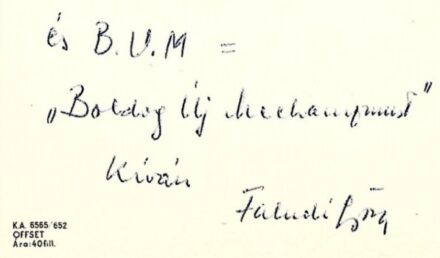 és B.U.M =
„Boldog Új Mechanizmust"
Kíván
Faludi György
K.A. 6565/652
OFFSET
Ára: 40 fill.